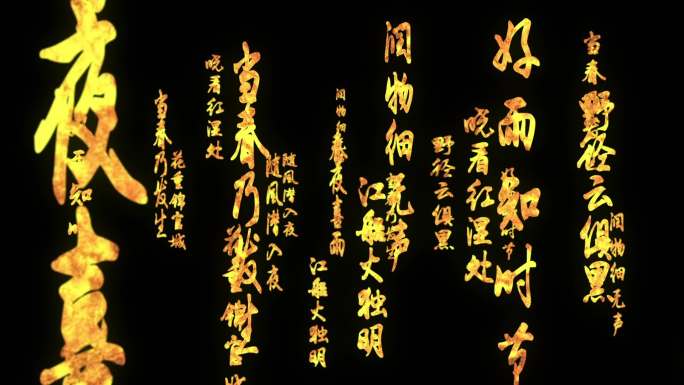 夜喜
好雨知时节
当春乃发生
随风潜入夜
润物细无声
野径云俱黑
江船火独明
晓看红湿处
花重锦官城
当春
野径云俱黑
润物细无声
晓看红湿处
野径云俱黑
江船火独明
润物细
春夜喜雨
江船火独明
随风潜入夜
当春乃发生
花重锦官城
晓看红湿处